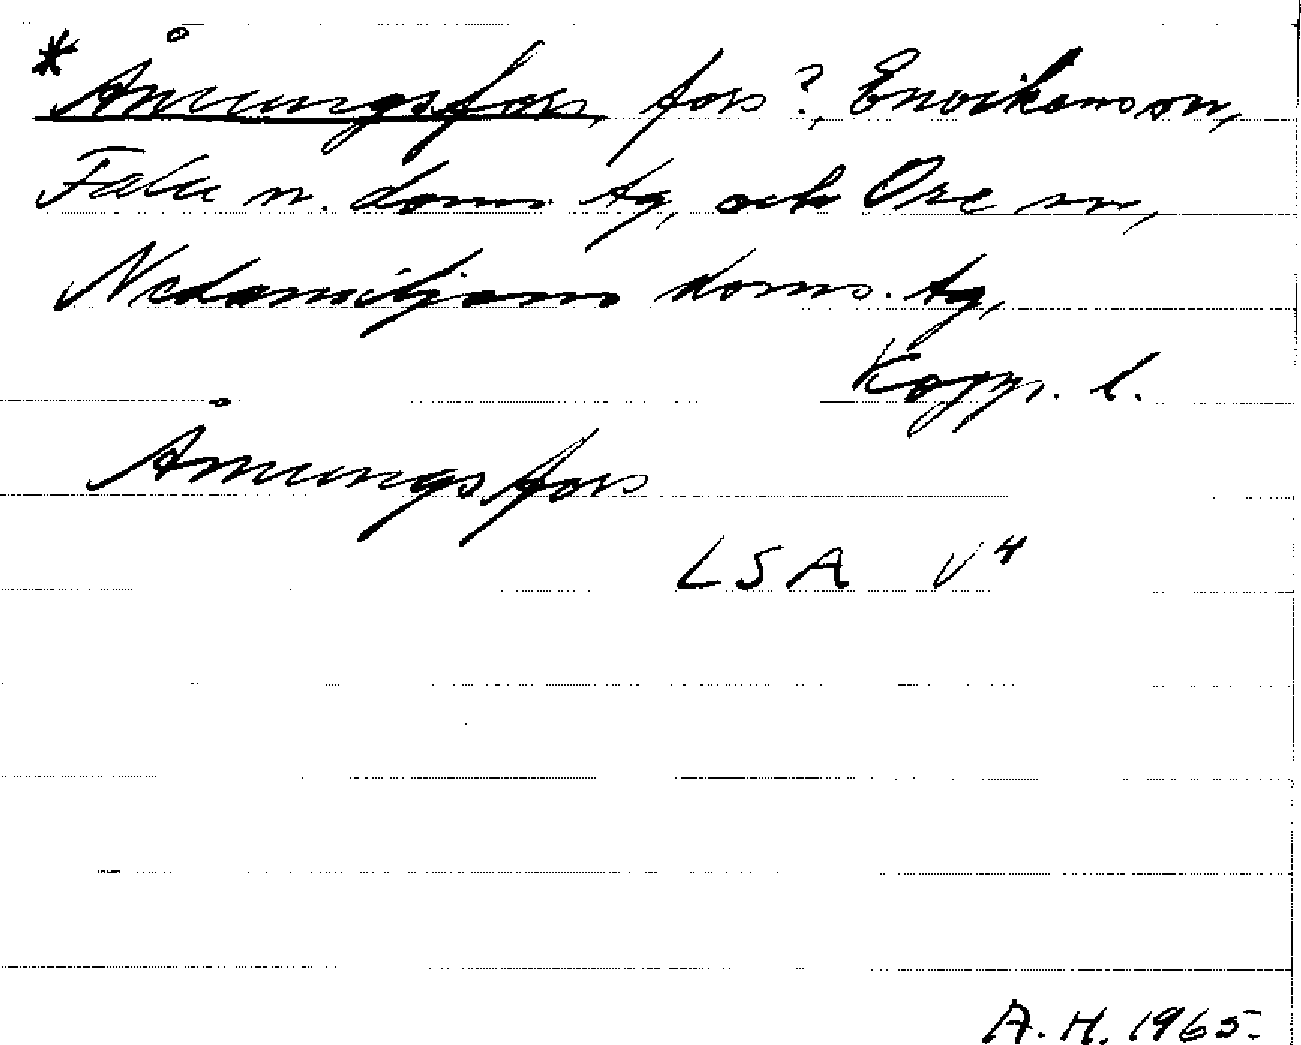 * Åmungsfors, fors?, Envikens sn,
Falu n. doms. tg, och Ore sn,
Nedansiljans doms. tg,
Kopp. l.
Åmungsfors
LSA V4
A. H. 1965.